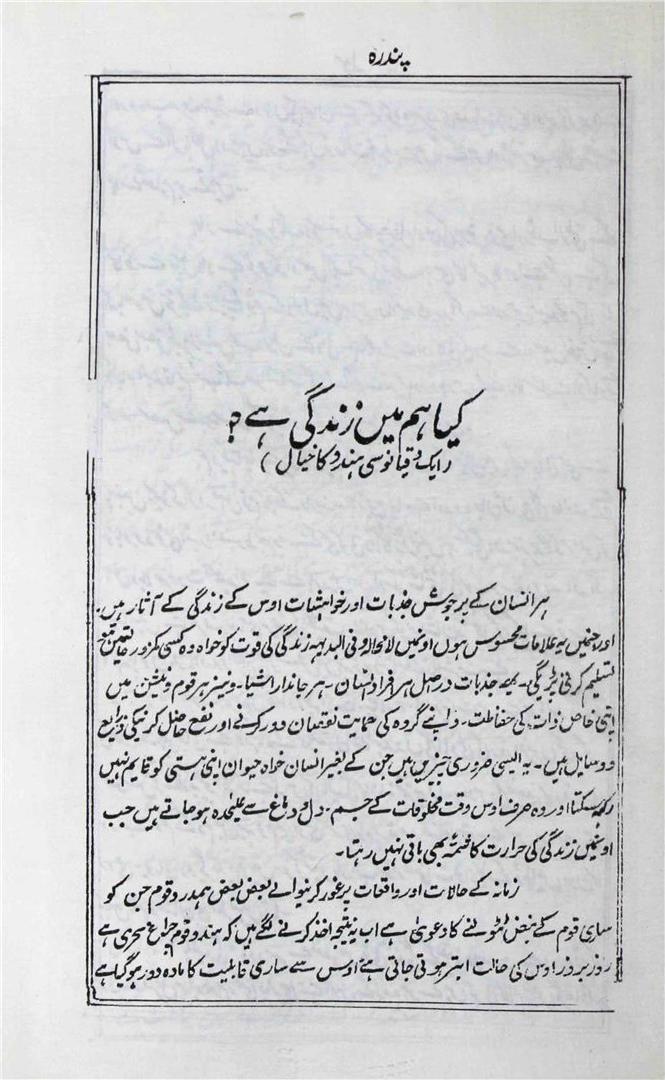 پندرہ
کیا ہم میں زندگی ہے؟
(ایک دقیانوسی ہندو کا خیال)
ہر انسان کے پرجوش جذبات اور خواہشات اوس کے زندگی کے آثار ہیں۔
اور جنھیں یہ علامات محسوس ہوں اونمیں لامحالہ وفی البدیہہ زندگی کی قوت کو خواہ وہ کسی کمزور حالتمیں ہو
تسلیم کرنی پڑیگی۔ یہ جذبات دراصل ہر افراد انسان۔ ہر جاندار اشیا۔ ونیز ہر قوم ونیشن میں
اپنی خاص ذات کی حفاظت۔ و اپنے گروہ کی حمایت نوقصان دور کرنے اور نفع حاصل کرنیکی ذرایع
و وسایل ہیں۔ یہ ایسی ضروری چیزیں ہیں جن کے بغیر انسان خواہ حیوان اپنی ہستی کو قایم نہیں
رکھہ سکتا اور وہ صرف اوس وقت مخلوقات کے جسم۔ دل و دماغ سے علیحدہ ہو جاتے ہیں جب
اونمیں زندگی کی حرارت کا شمہ بھی باقی نہیں رہتا۔
زمانہ کے حالات اور واقعات پر غور کرنیوالے بعض بعض ہمدرد قوم جن کو
ساری قوم کے نبض ٹٹولنے کا دعویٰ ہے اب یہ نتیجہ اخذ کرنے لگے ہیں کہ ہندو قوم چراغ سحری ہے
روز بروز اوس کی حالت ابتر ہوتی جاتی ہے اوس سے ساری قابلیت کا مادہ دور ہو گیا ہے